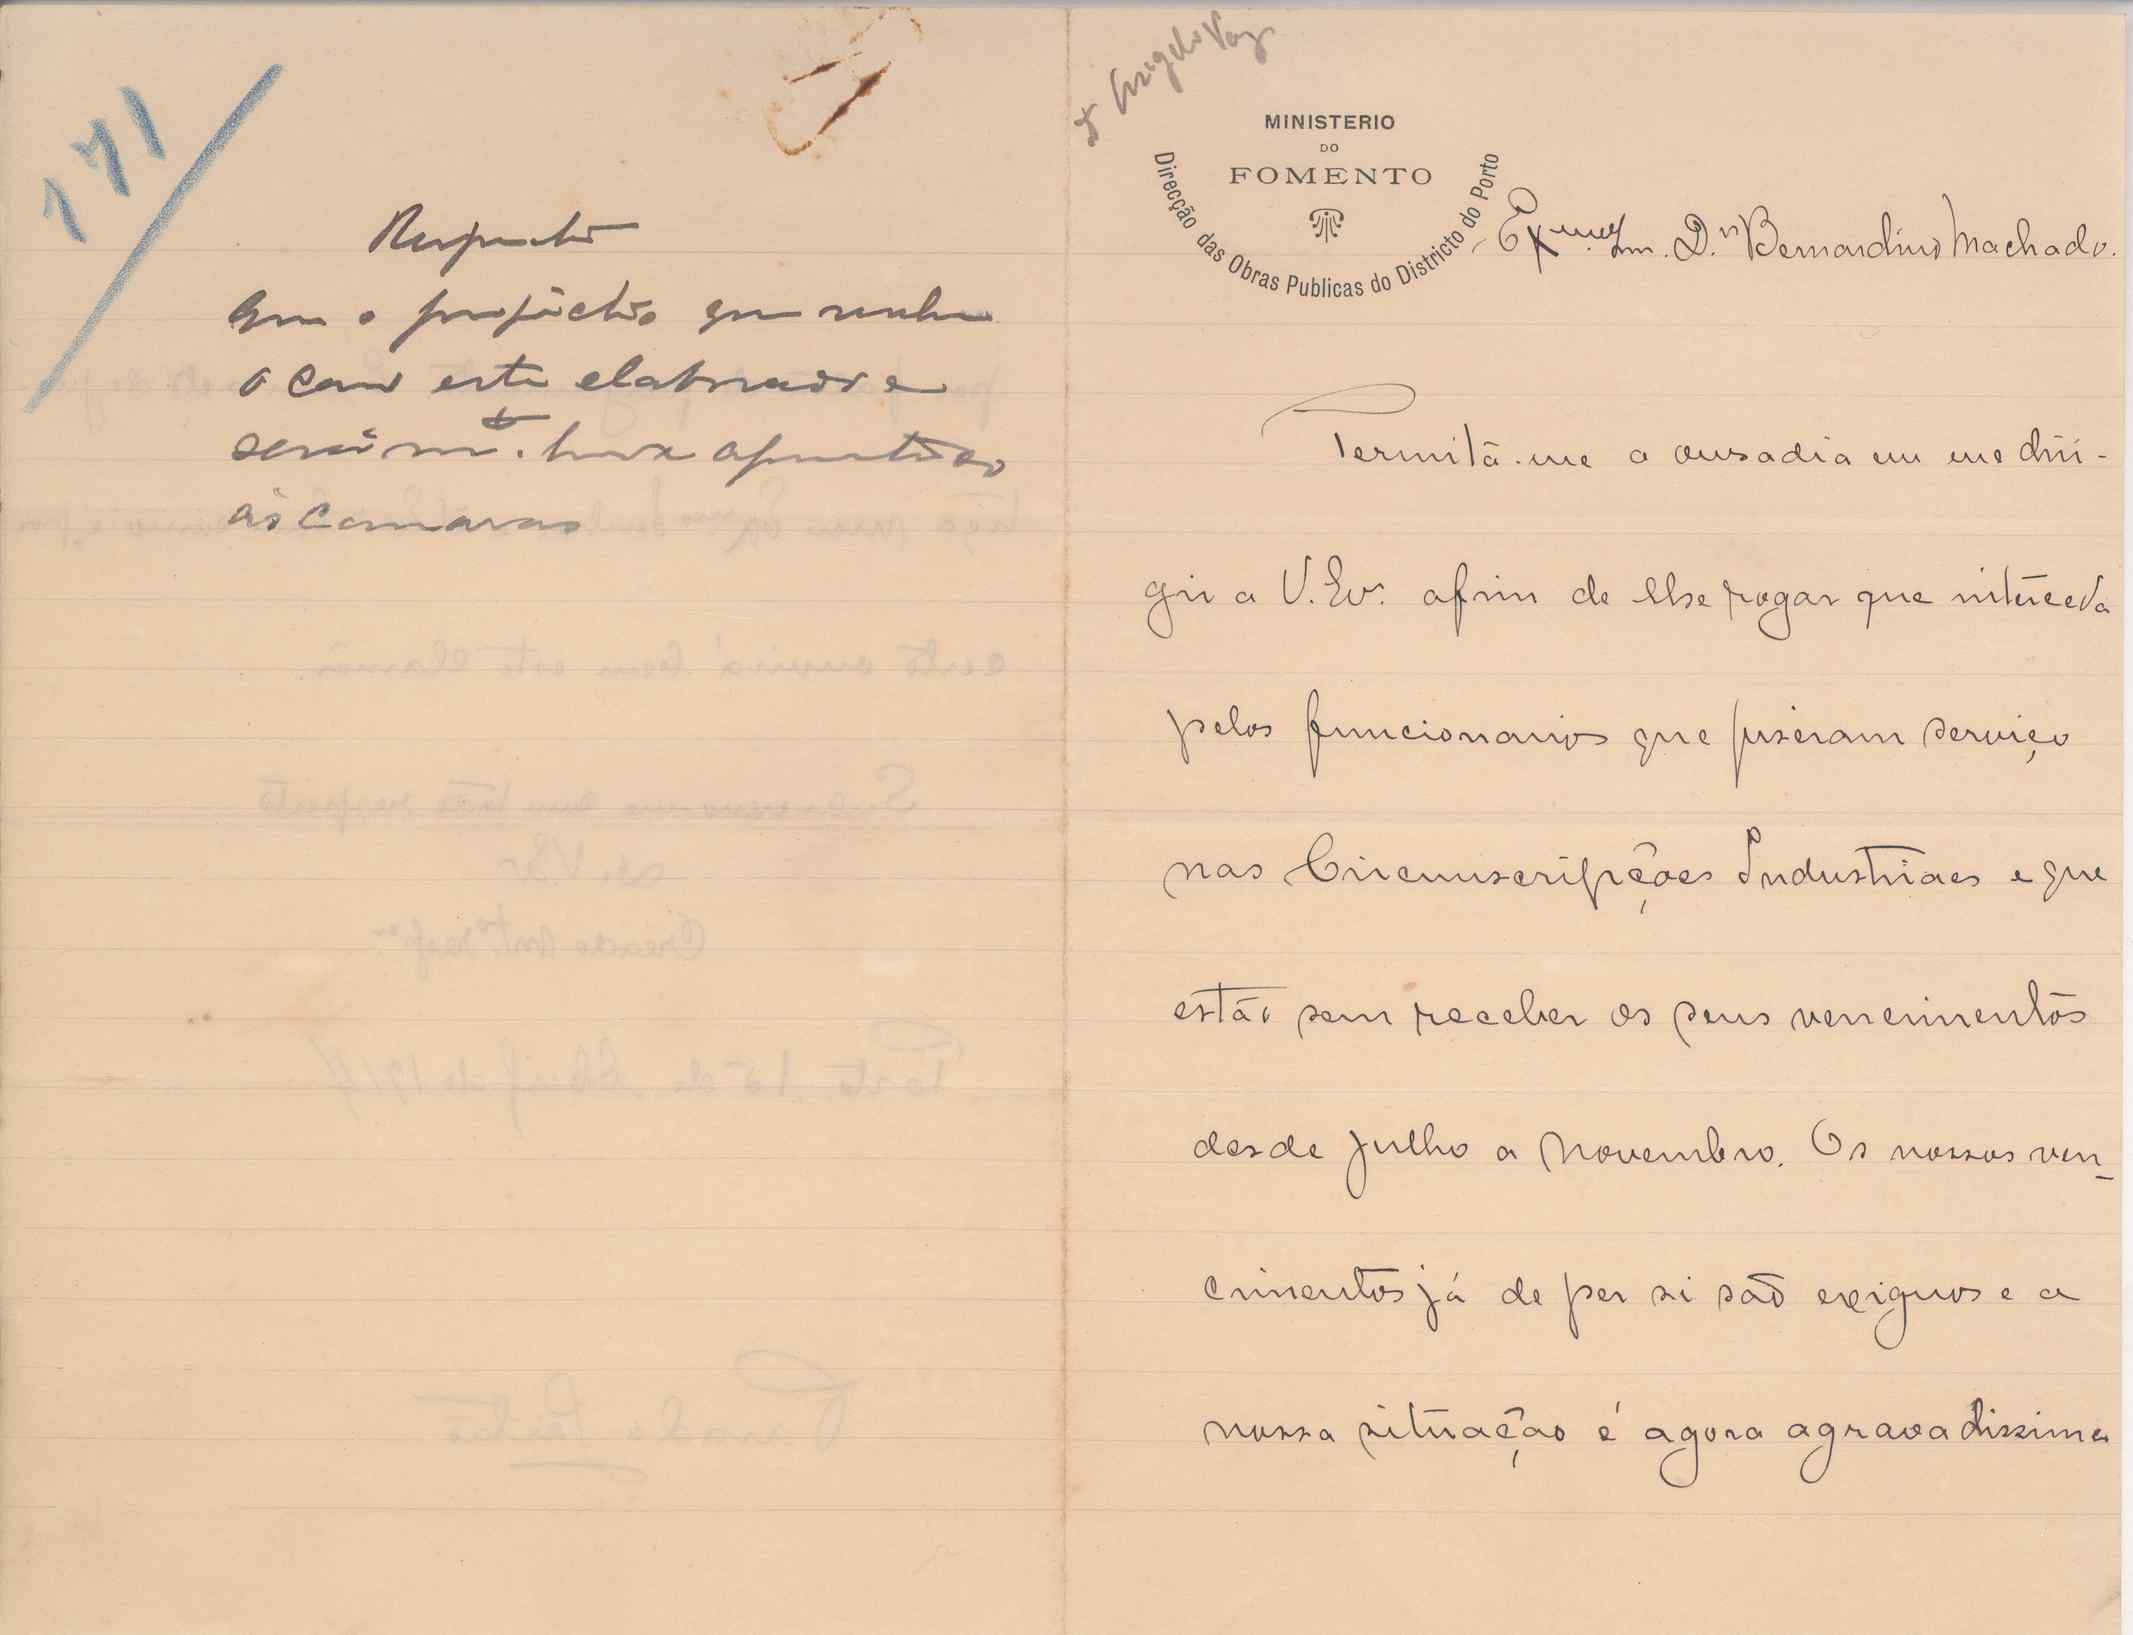 171
Respondido
que o projécto que resolve
o caso está elaborado e
será m.to breve apresentado
ás Camaras
MINISTERIO
DO
FOMENTO
Direcção das Obras Publicas do Districto do Porto
Ex.mo Snr. D.r Bernardino Machado.
Permitá-me a ousadia em me diri-
gir a V. Ex.ª afim de lhe rogar que interceda
pelos funcionarios que fiseram serviço
nas Circumscripções Industriaes e que
estão sem receber os seus vencimentos
desde julho a Novembro. Os nossos ven-
cimentos já de per si são exiguos e a
nossa situação é agora agravadissima